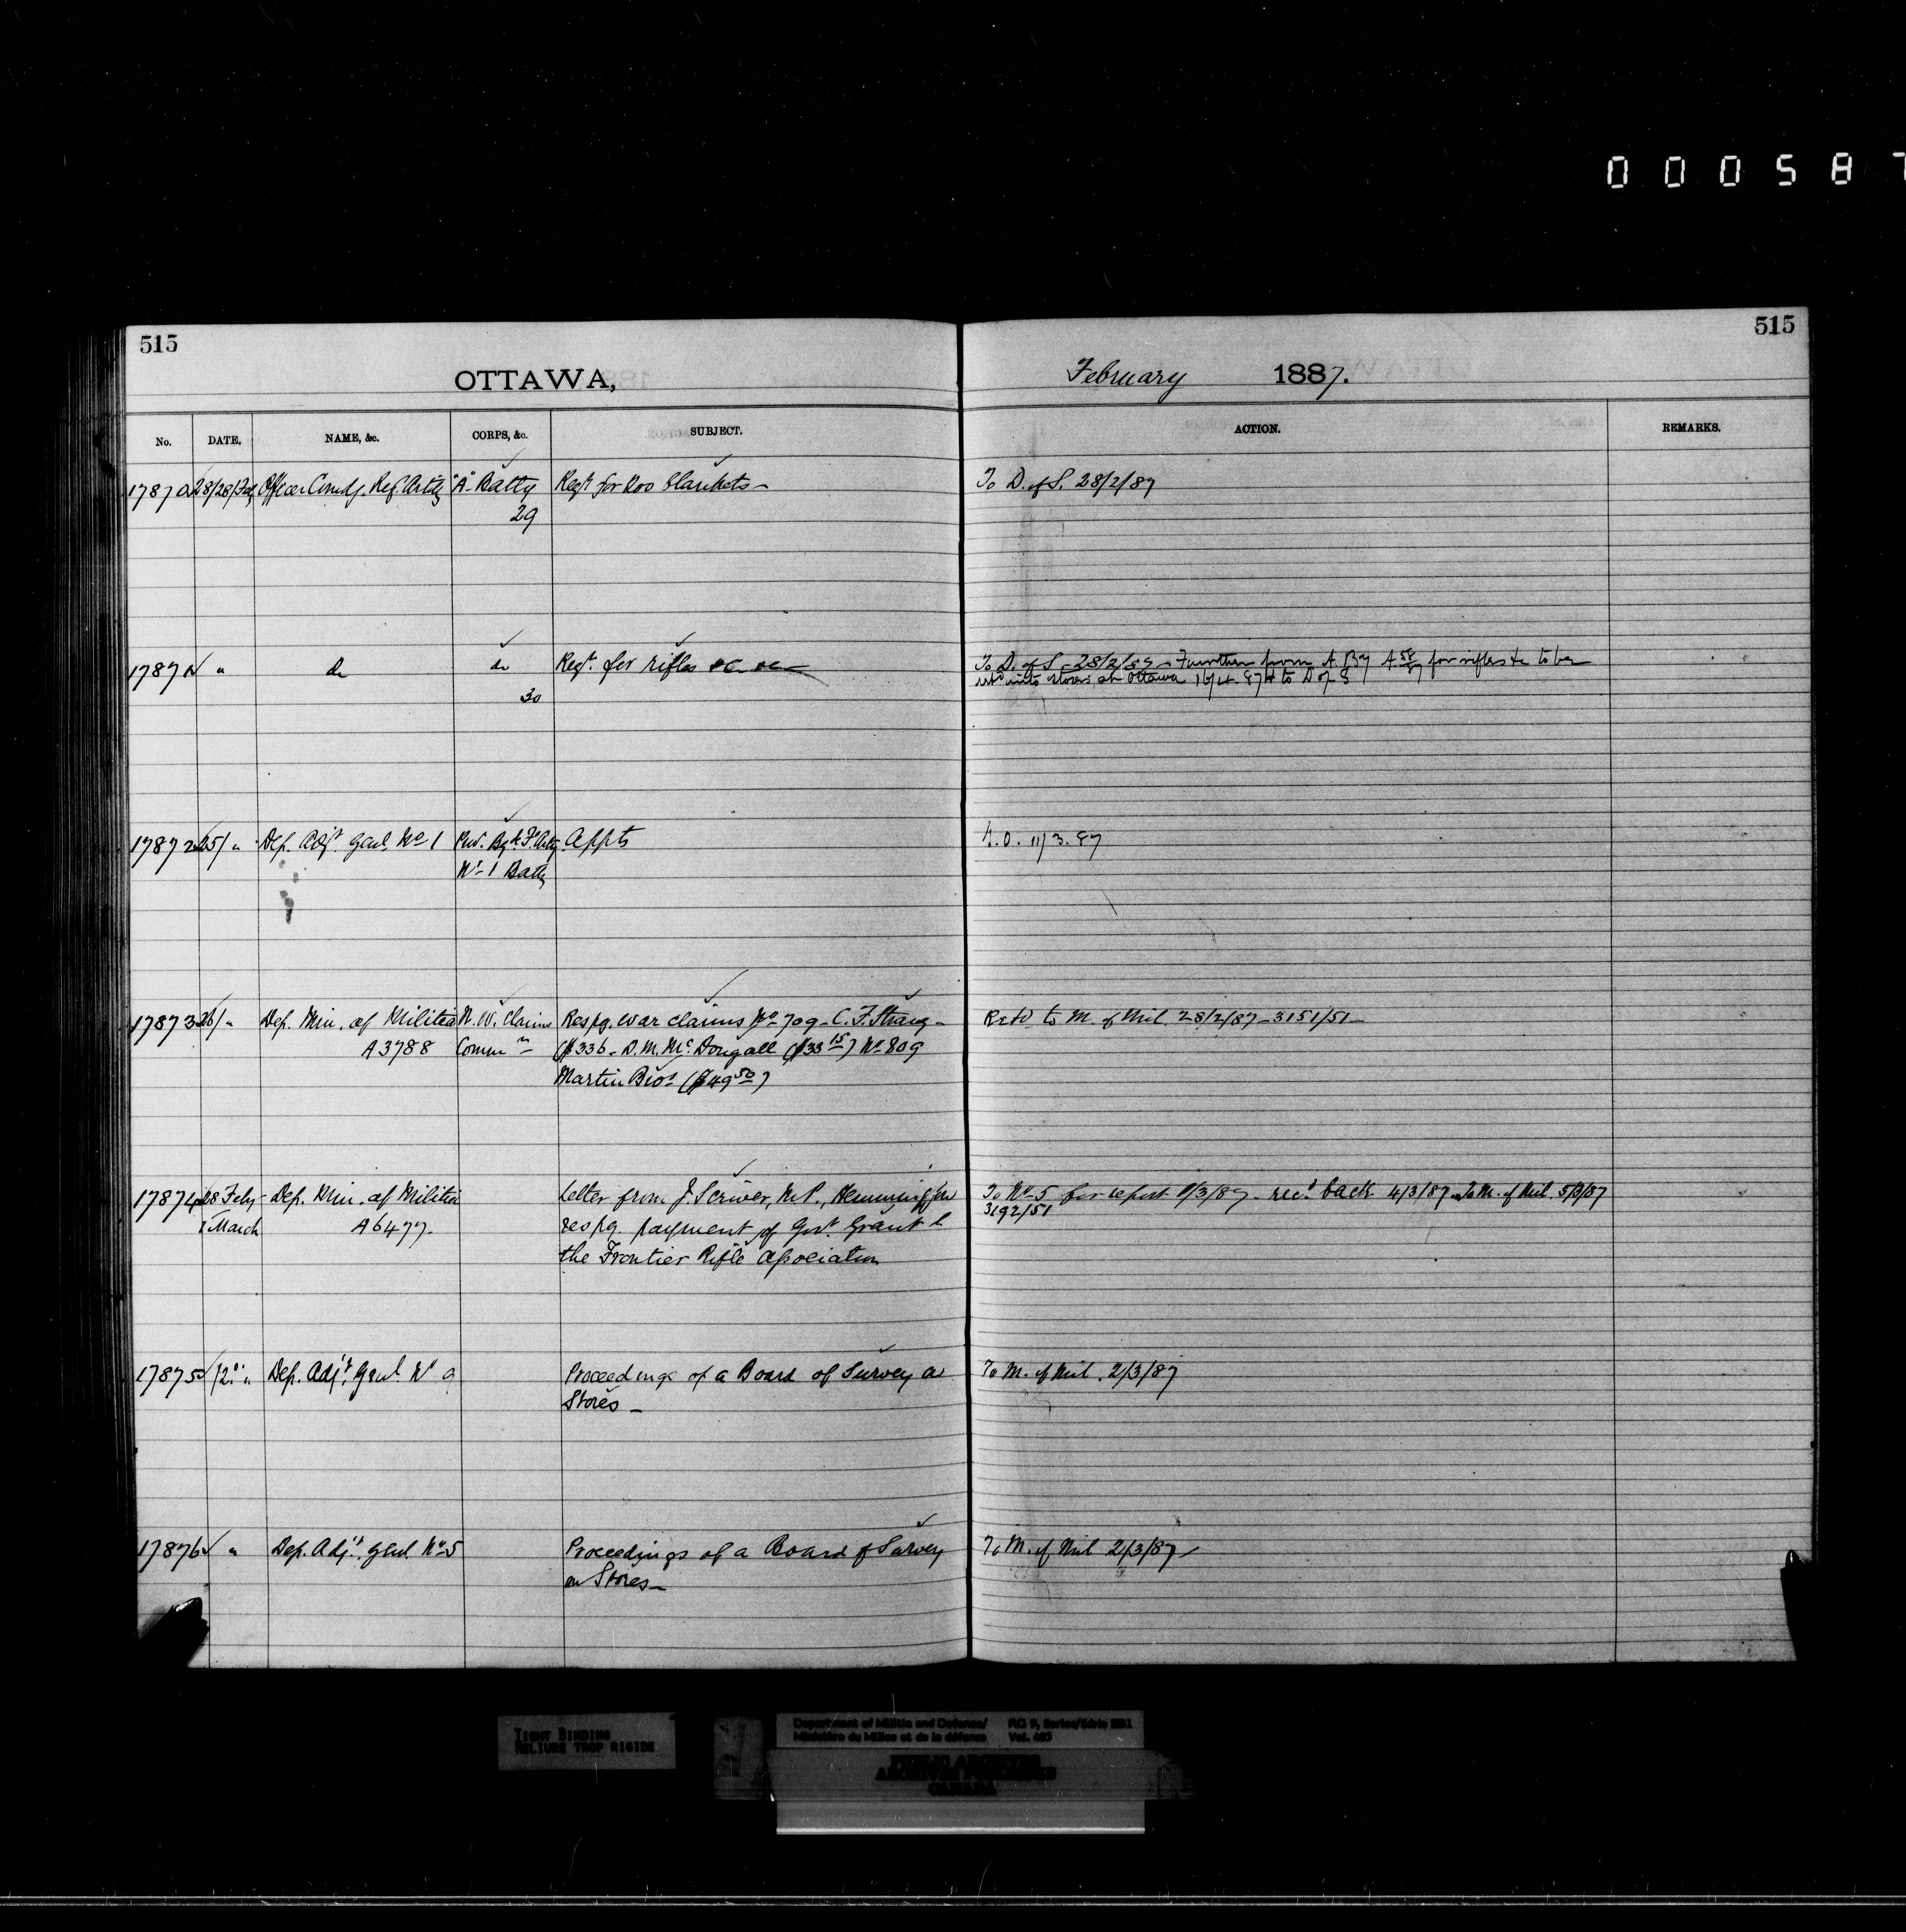 000587
515
515
OTTAWA,
February 1887.
No. DATE. NAME, &c. CORPS, &c. SUBJECT. ACTION. REMARKS.
17870 28/28/Feb Officer Comdg. Regt Arty "A" Batty Reqt for 200 blankets - To D. of S. 28/2/87
29
17871 " do do Reqt. for rifles &c &c - To D. of S - 28/2/87 - Further from A. By A 58/87 for rifles &c to be
retd into stores at Ottawa 16/4.87 to D of S
30
17872 25/ " Dep. Adjt Genl. No 1 Prov. Bgde. Fd Arty Appts G.O. 11/3.87
No 1 Batty
17873 26/ " Dep. Min. of Militia N.W. Claims Respg. war claims No 709 - C. F. Strang - Retd to M. of Mil. 28/2/87 - 3151/51 -
A3788 Commn ($336 - D. M. McDougall ($33 15) No 809
Martin Bros ($49 50)
17874 28 Feby Dep. Min. of Militia Letter from J. Scriver, M.P., Hemmingford To No 5 for report 1/3/87 - recd back 4/3/87 To M. of Mil. 5/3/87
1 March A6477. respg. payment of Govt. Grant to 3192/51
the Frontier Rifle Association
17875 /2 " Dep. Adjt. Genl. No 9 Proceedings of a Board of Survey on To M. of Mil. 2/3/87
Stores -
17876 " Dep. Adjt. Genl. No 5 Proceedings of a Board of Survey To M. of Mil 2/3/87 -
on Stores -
TIGHT BINDING
RELIURE TROP RIGIDE
Department of Militia and Defence/ RG 9, Series/Série
Ministère du Milice et de la défense Vol.
PUBLIC ARCHIVES
ARCHIVES PUBLIQUES
CANADA